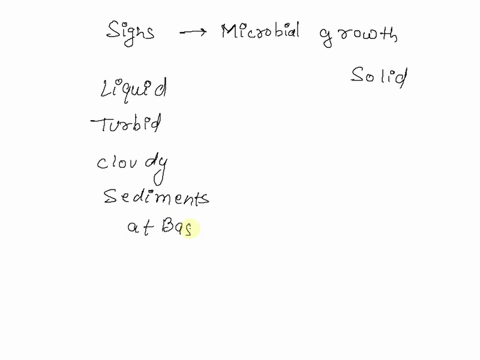 Signs → Microbial growth
Liquid
Solid
Turbid
cloudy
Sediments
at Bas